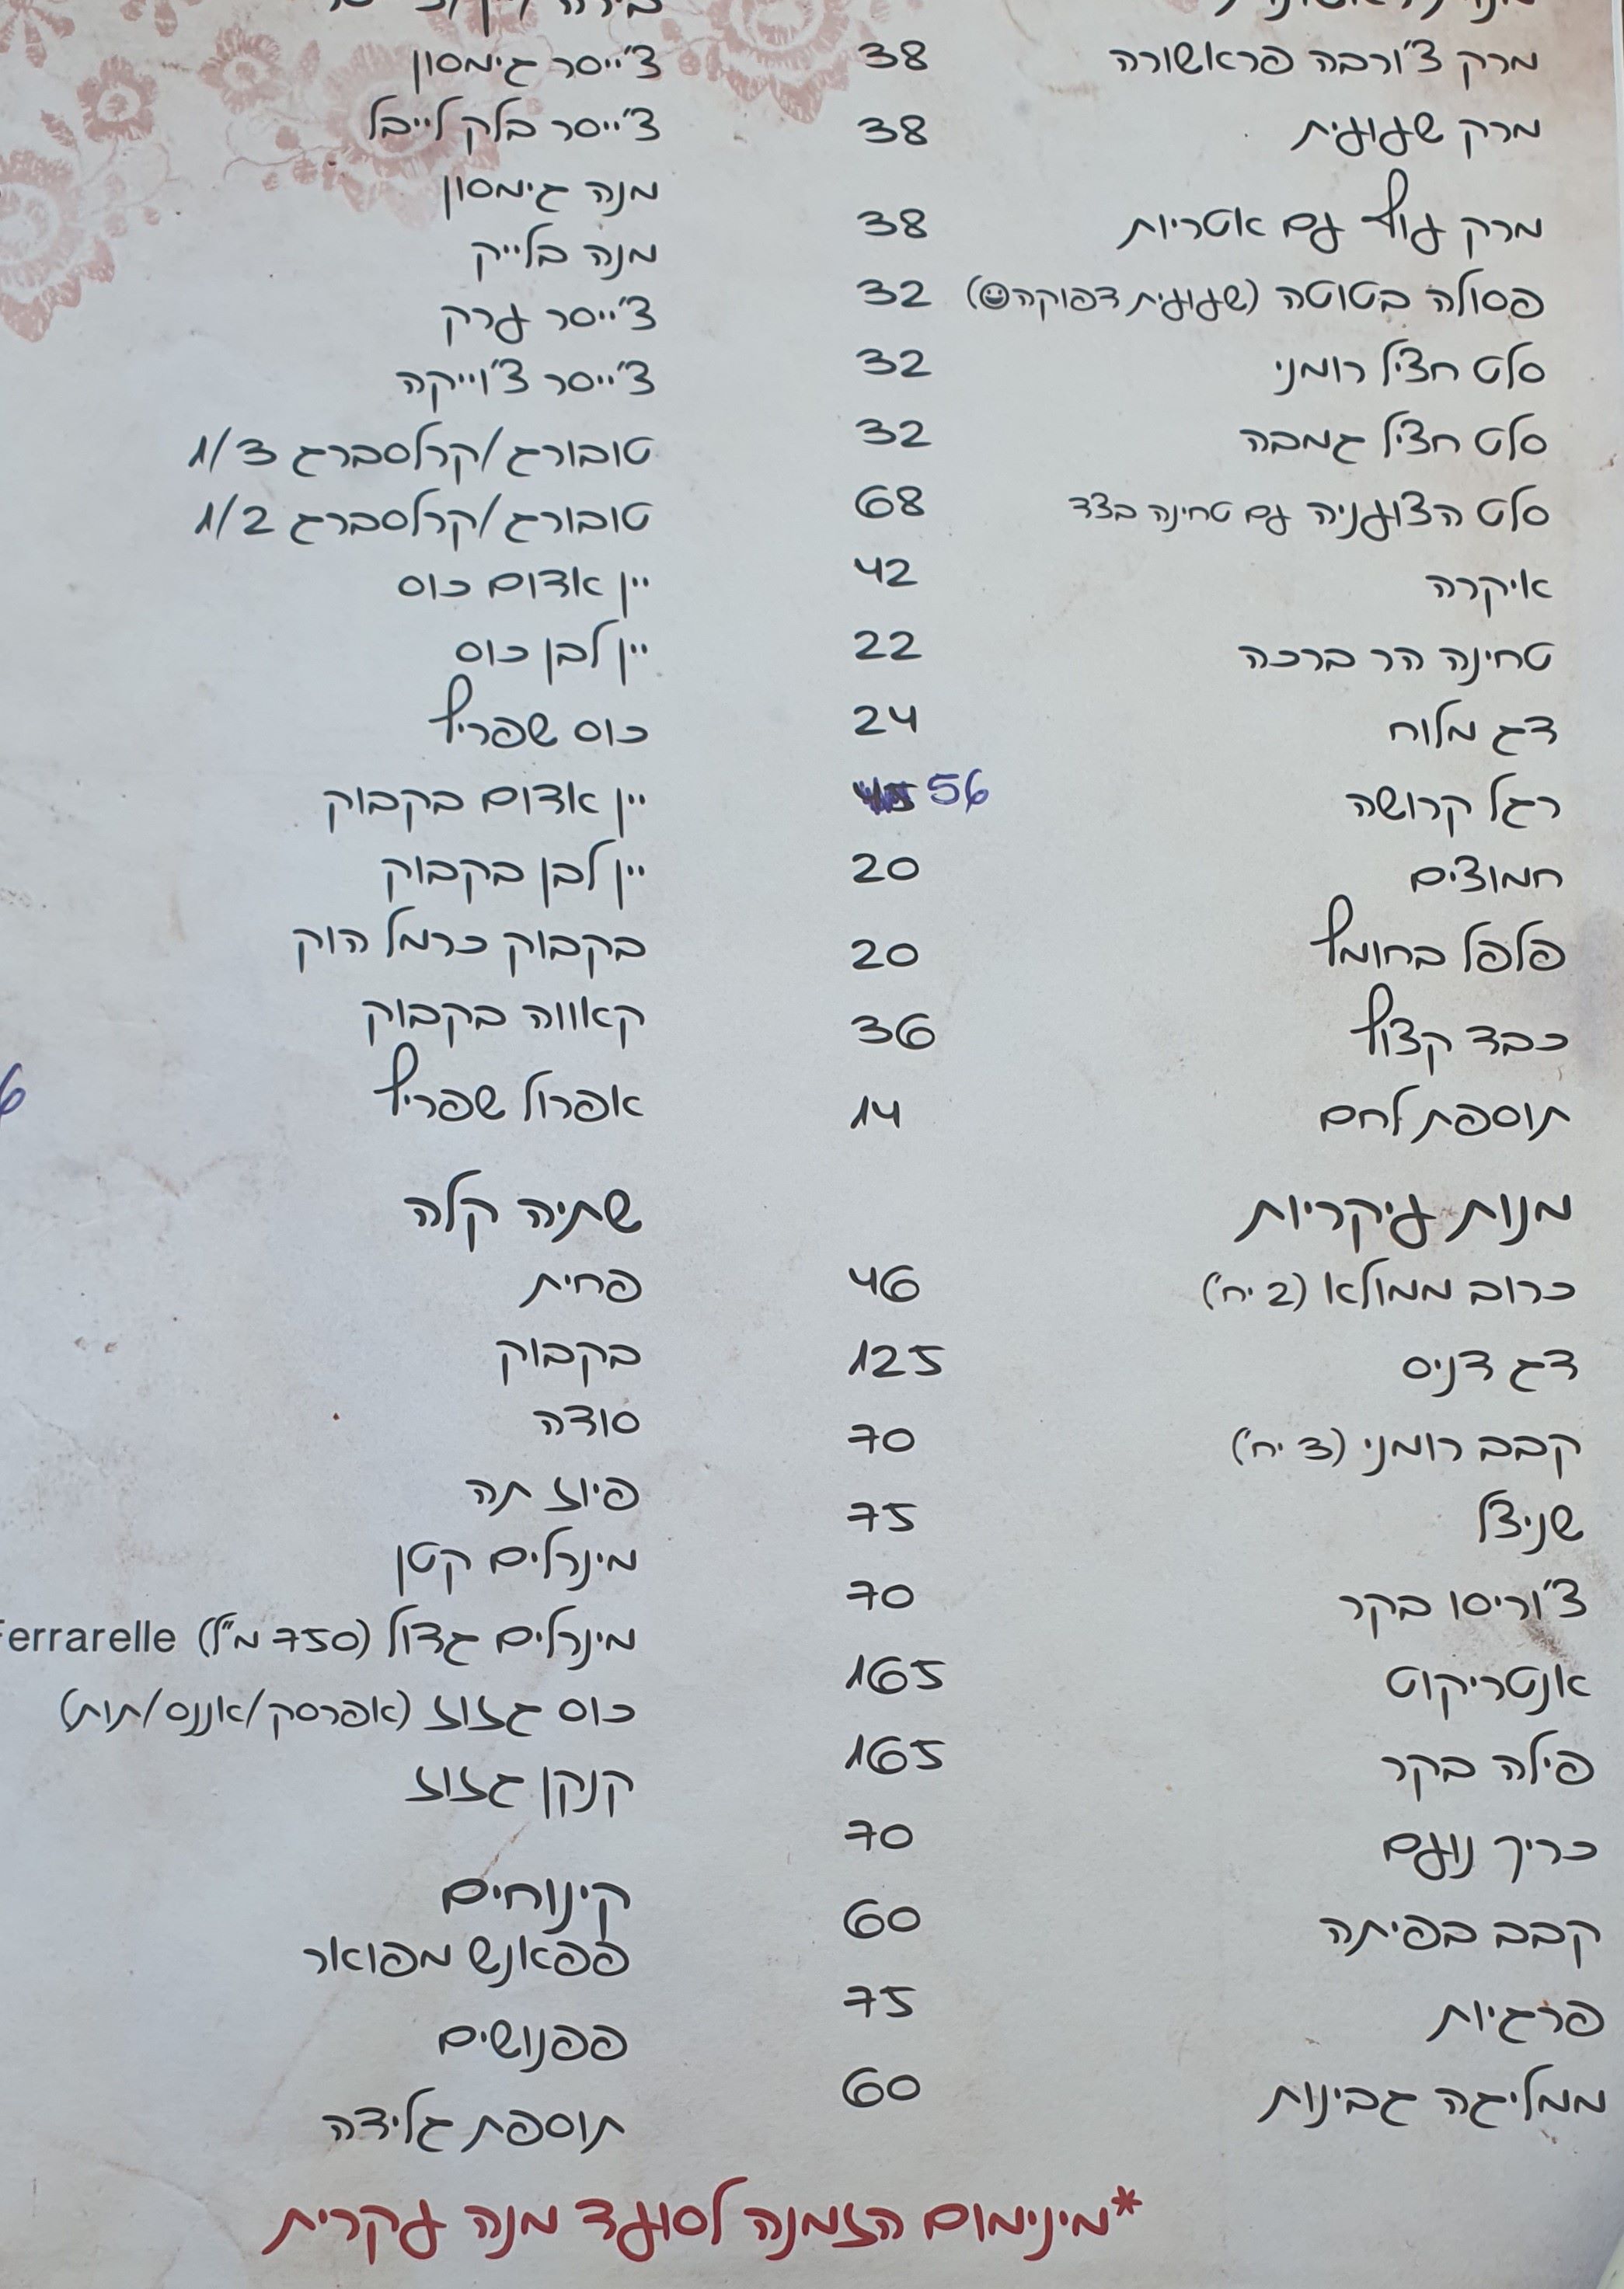 מרק צ'ורבה פראשורה 38
מרק שעועית 38
מרק עוף עם אטריות 38
פסולה בטוטה (שעועית דפוקה☺) 32
סלט חציל רומני 32
סלט חציל גמבה 32
סלט הצועניה עם טחינה בצד 68
איקרה 42
טחינה הר ברכה 22
דג מלוח 24
רגל קרושה 56
חמוצים 20
פלפל בחומץ 20
כבד קצוץ 36
תוספת לחם 14
מנות עיקריות
כרוב ממולא (2 יח')  46
דג דניס 125
קבב רומני (3 יח') 70
שניצל 75
צ'וריסו בקר 70
אנטריקוט 165
פילה בקר 165
כריך נועם 70
קבב בפיתה 60
פרגיות 75
ממליגה גבינות 60
צ'ייסר גימסון
צ'ייסר בלק לייבל
מנה גימסון
מנה בלייק
צ'ייסר ערק
צ'ייסר צ'וייקה
טובורג/קרלסברג 1/3
טובורג/קרלסברג 1/2
יין אדום כוס
יין לבן כוס
כוס שפריץ
יין אדום בקבוק
יין לבן בקבוק
בקבוק כרמל הוק
קאווה בקבוק
אפרול שפריץ
שתיה קלה
פחית
בקבוק
סודה
פיוז תה
מינרלים קטן
מינרלים גדול (750 מ"ל) Ferrarelle
כוס גזוז (אפרסק/אננס/תות)
קנקן גזוז
קינוחים
פפאנש מפואר
פפנושים
תוספת גלידה
*מינימום הזמנה לסועד מנה עקרית